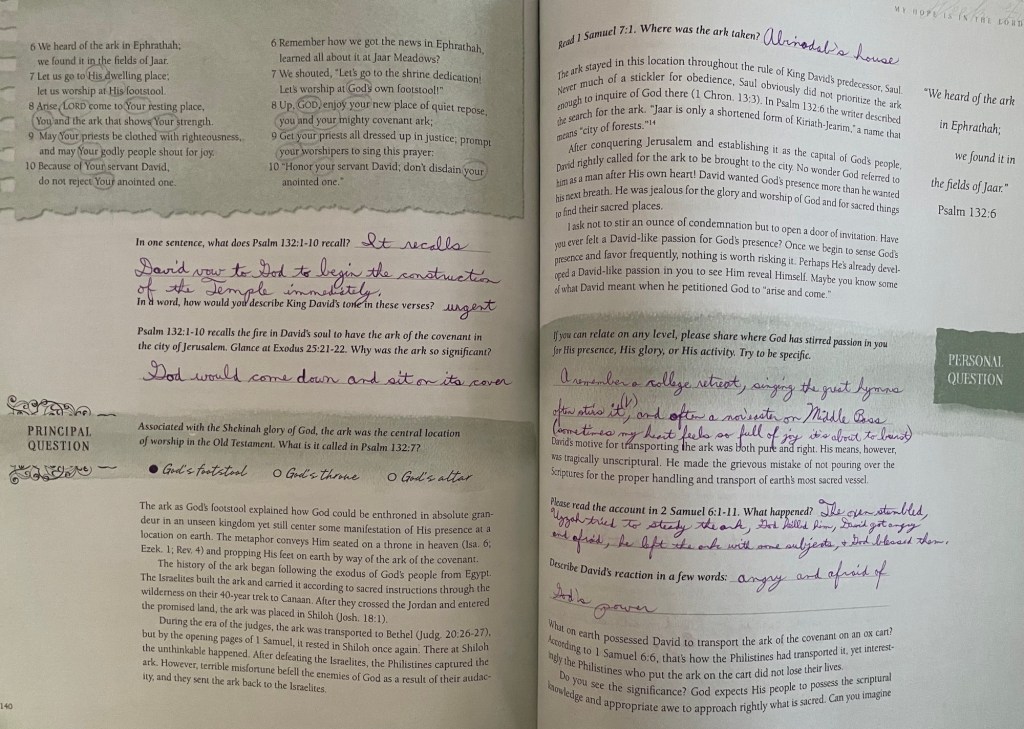 6 We heard of the ark in Ephrathah;
we found it in the fields of Jaar.
7 Let us go to His dwelling place;
let us worship at His footstool.
8 Arise, LORD come to Your resting place,
You and the ark that shows Your strength.
9 May Your priests be clothed with righteousness,
and may Your godly people shout for joy.
10 Because of Your servant David,
do not reject Your anointed one.
6 Remember how we got the news in Ephrathah,
learned all about it at Jaar Meadows?
7 We shouted, "Let's go to the shrine dedication!
Let's worship at God's own footstool!"
8 Up, GOD, enjoy your new place of quiet repose,
you and your mighty covenant ark;
9 Get your priests all dressed up in justice; prompt
your worshipers to sing this prayer:
10 "Honor your servant David; don't disdain your
anointed one."
In one sentence, what does Psalm 132:1-10 recall? It recalls
David vow to God to begin the construction
of the Temple immediately.
In a word, how would you describe King David's tone in these verses? urgent
Psalm 132:1-10 recalls the fire in David's soul to have the ark of the covenant in
the city of Jerusalem. Glance at Exodus 25:21-22. Why was the ark so significant?
God would come down and sit on its cover
PRINCIPAL
QUESTION
Associated with the Shekinah glory of God, the ark was the central location
of worship in the Old Testament. What is it called in Psalm 132:7?
God's footstool God's throne God's altar
The ark as God's footstool explained how God could be enthroned in absolute gran-
deur in an unseen kingdom yet still center some manifestation of His presence at a
location on earth. The metaphor conveys Him seated on a throne in heaven (Isa. 6;
Ezek. 1; Rev. 4) and propping His feet on earth by way of the ark of the covenant.
The history of the ark began following the exodus of God's people from Egypt.
The Israelites built the ark and carried it according to sacred instructions through the
wilderness on their 40-year trek to Canaan. After they crossed the Jordan and entered
the promised land, the ark was placed in Shiloh (Josh. 18:1).
During the era of the judges, the ark was transported to Bethel (Judg. 20:26-27),
but by the opening pages of 1 Samuel, it rested in Shiloh once again. There at Shiloh
the unthinkable happened. After defeating the Israelites, the Philistines captured the
ark. However, terrible misfortune befell the enemies of God as a result of their audac-
ity, and they sent the ark back to the Israelites.
140
MY HOPE IS IN THE LORD
Read 1 Samuel 7:1. Where was the ark taken? Abinadab's house
The ark stayed in this location throughout the rule of King David's predecessor, Saul.
Never much of a stickler for obedience, Saul obviously did not prioritize the ark
enough to inquire of God there (1 Chron. 13:3). In Psalm 132:6 the writer described
the search for the ark. "Jaar is only a shortened form of Kiriath-Jearim," a name that
means "city of forests."14
After conquering Jerusalem and establishing it as the capital of God's people,
David rightly called for the ark to be brought to the city. No wonder God referred to
him as a man after His own heart! David wanted God's presence more than he wanted
his next breath. He was jealous for the glory and worship of God and for sacred things
to find their sacred places.
I ask not to stir an ounce of condemnation but to open a door of invitation. Have
you ever felt a David-like passion for God's presence? Once we begin to sense God's
presence and favor frequently, nothing is worth risking it. Perhaps He's already devel-
oped a David-like passion in you to see Him reveal Himself. Maybe you know some
of what David meant when he petitioned God to "arise and come."
"We heard of the ark
in Ephrathah;
we found it in
the fields of Jaar."
Psalm 132:6
PERSONAL
QUESTION
If you can relate on any level, please share where God has stirred passion in you
for His presence, His glory, or His activity. Try to be specific.
remember a college retreat, singing the great hymns
often stirs it, and often a nor'easter on Middle Bass
(sometimes my heart feels so full of joy it's about to burst)
David's motive for transporting the ark was both pure and right. His means, however,
was tragically unscriptural. He made the grievous mistake of not pouring over the
Scriptures for the proper handling and transport of earth's most sacred vessel.
Please read the account in 2 Samuel 6:1-11. What happened? The oxen stumbled,
Uzzah tried to steady the ark, God killed him, David got angry
and afraid, he left the ark with some subjects, + God blessed them.
Describe David's reaction in a few words: angry and afraid of
God's power
What on earth possessed David to transport the ark of the covenant on an ox cart?
According to 1 Samuel 6:6, that's how the Philistines had transported it, yet interest-
ingly the Philistines who put the ark on the cart did not lose their lives.
Do you see the significance? God expects His people to possess the scriptural
knowledge and appropriate awe to approach rightly what is sacred. Can you imagine